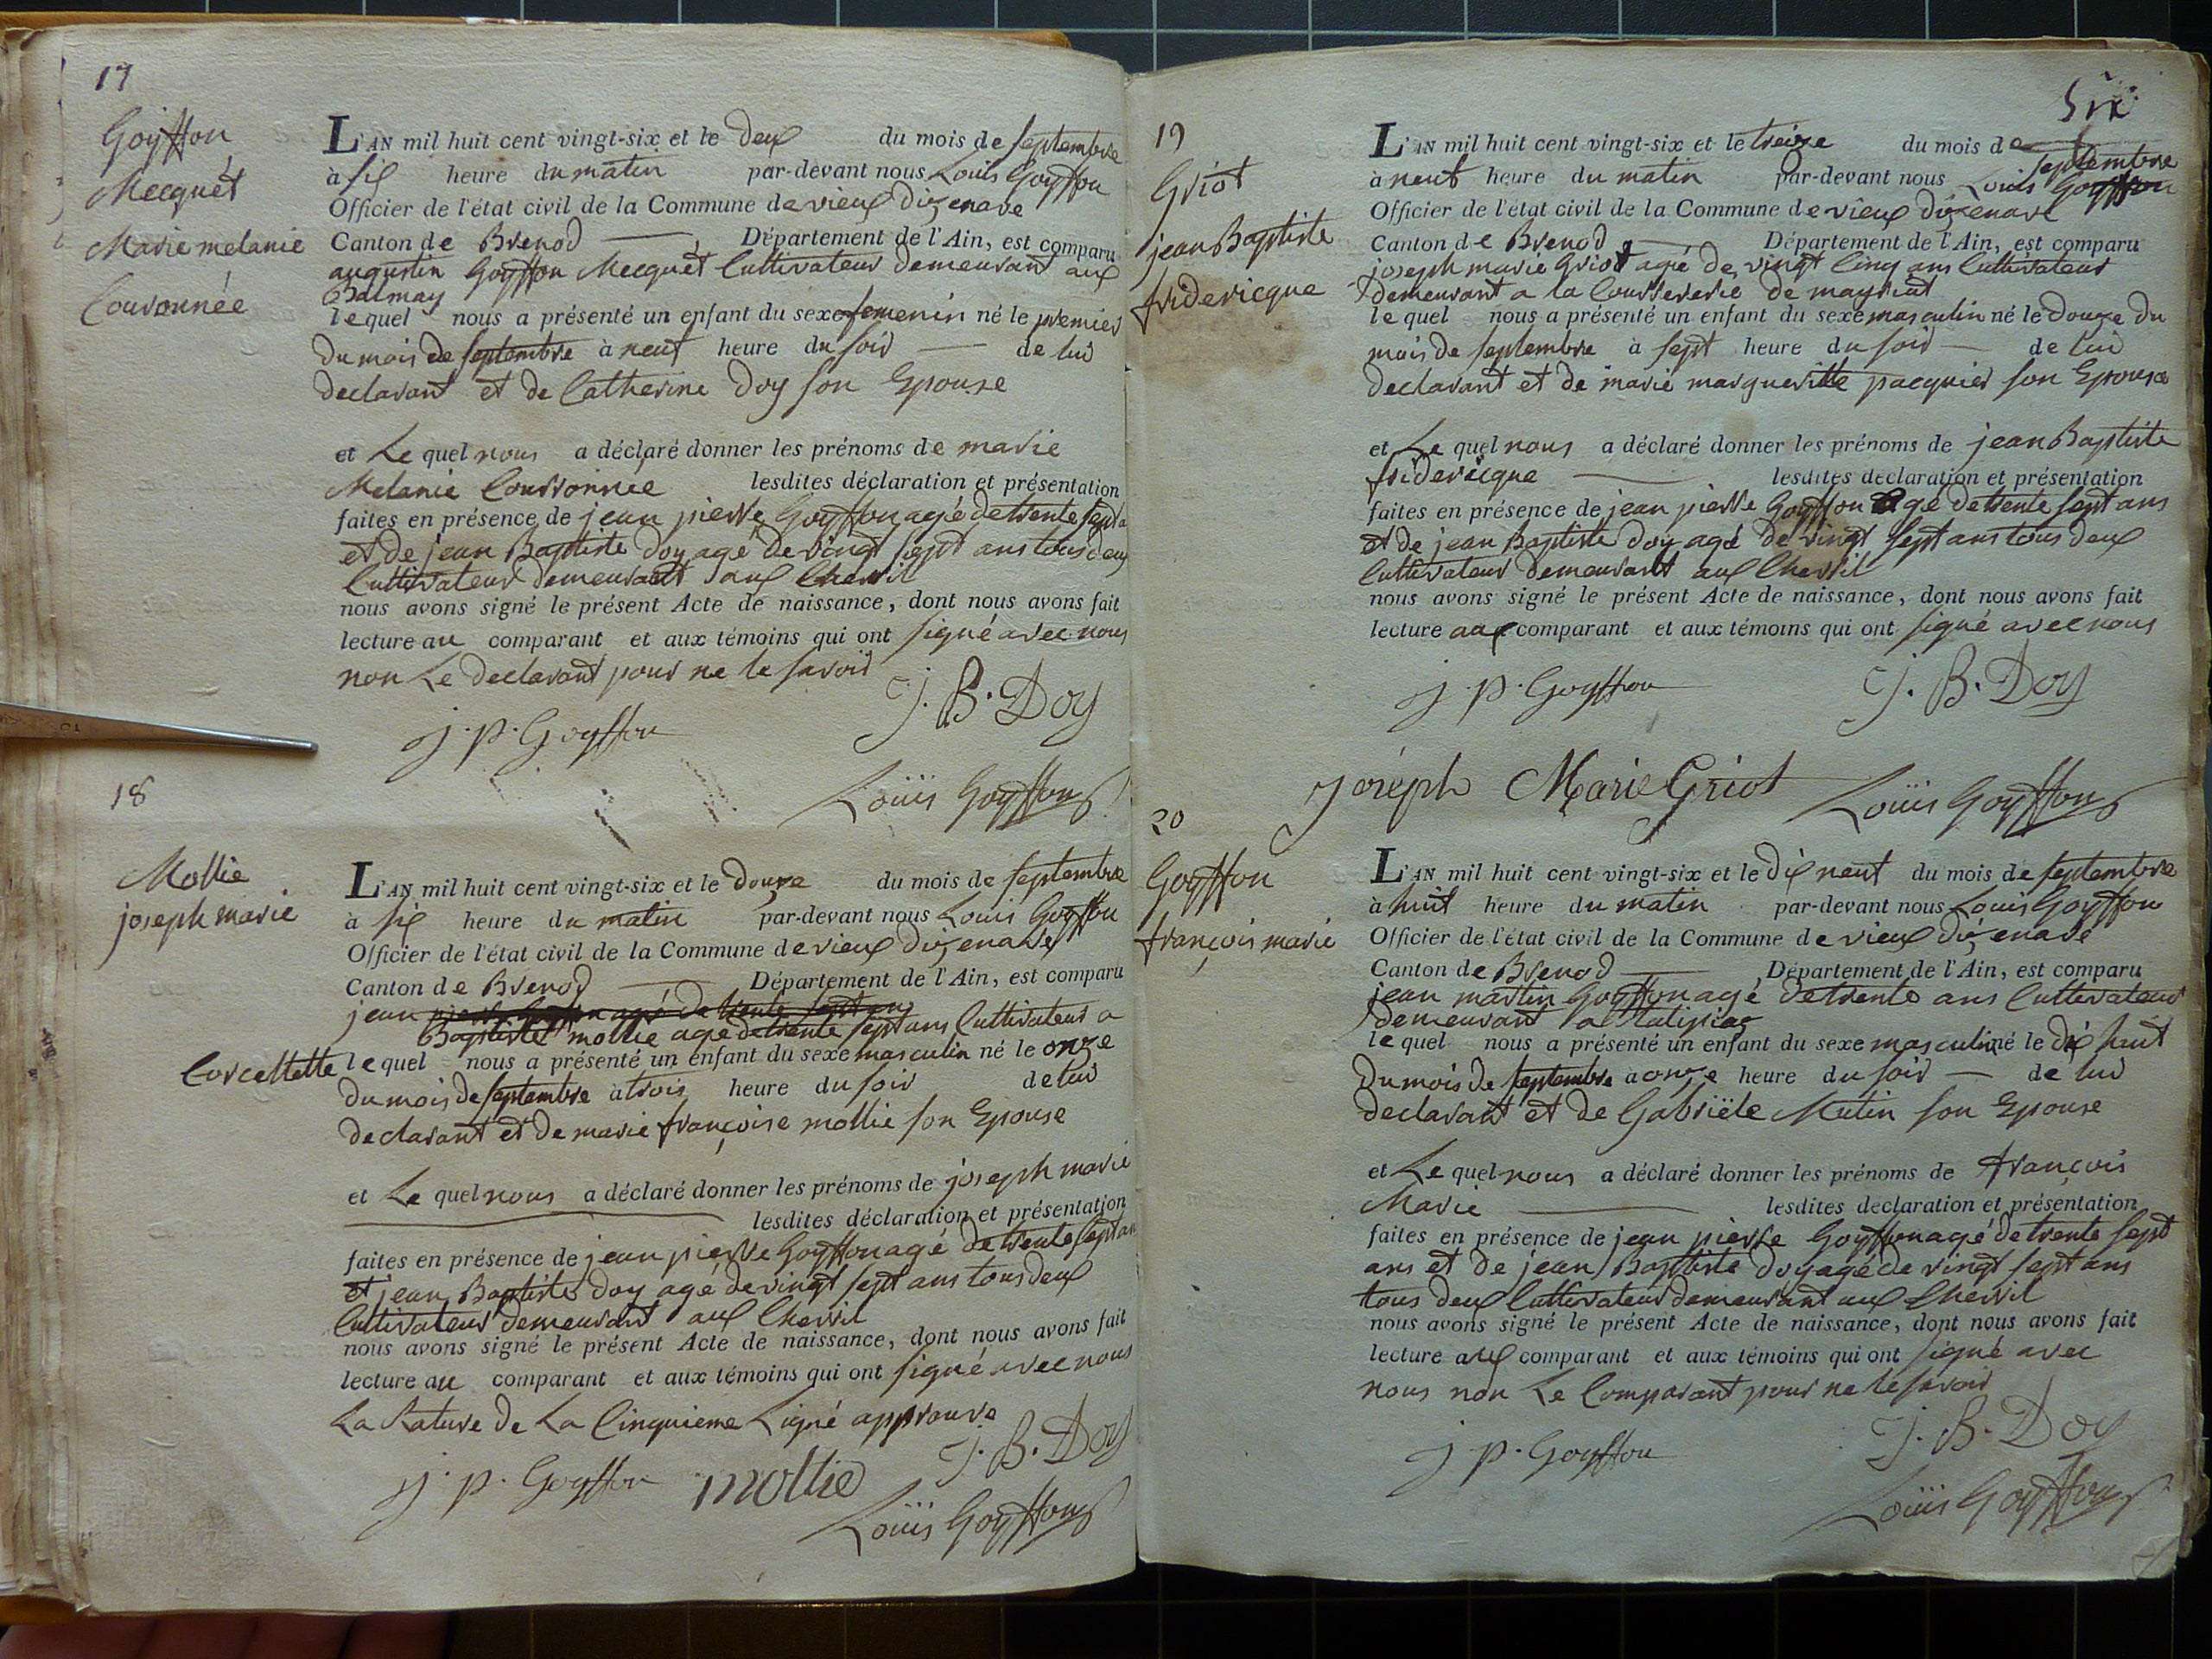 17
Goyffon
Mecquet
Marie melanie
Couronnée
L'AN mil huit cent vingt-six et le deux du mois de septembre
à six heure du matin par-devant nous Louis Goyffon
Officier de l'état civil de la Commune de vieux dizenave
Canton de Brenod Département de l'Ain, est comparu
augustin Goyffon Mecquet Cultivateur demeurant aux
Balmay
lequel nous a présenté un enfant du sexe femenin né le premier
du mois de septembre à neuf heure du soir de lui
declarant et de Catherine Doy son Epouse
et Le quel nous a déclaré donner les prénoms de marie
Melanie Couronnée lesdites déclaration et présentation
faites en présence de jean pierre Goyffon agé de trente sept
et de jean Baptiste Doy agé de vingt sept ans tous deux
Cultivateur demeurant aux Chevril
nous avons signé le présent Acte de naissance, dont nous avons fait
lecture au comparant et aux témoins qui ont signé avec nous
non Le declarant pour ne le savoir
J. B. Doy
j. p. Goyffon
Louis Goyffon
18
Mollie
joseph marie
Corcellette
L'AN mil huit cent vingt-six et le douze du mois de septembre
à six heure du matin par-devant nous Louis Goyffon
Officier de l'état civil de la Commune de vieux dizenave
Canton de Brenod Département de l'Ain, est comparu
jean pierre Goyffon agé de trente sept ans
Baptiste mollie agé de trente sept ans Cultivateur a
lequel nous a présenté un enfant du sexe masculin né le onze
du mois de septembre à trois heure du soir de lui
declarant et de marie françoise mollie son Epouse
et Le quel nous a déclaré donner les prénoms de joseph marie
lesdites déclaration et présentation
faites en présence de jean pierre Goyffon agé de trente sept an
et jean Baptiste Doy agé de vingt sept ans tous deux
Cultivateur demeurant aux Chevril
nous avons signé le présent Acte de naissance, dont nous avons fait
lecture au comparant et aux témoins qui ont signé avec nous
La Rature de La Cinquieme Ligne approuve
J. B. Doy
j. p. Goyffon mollie
Louis Goyffon
Six
19
Griot
jean Baptiste
fridericque
L'AN mil huit cent vingt-six et le treize du mois de
septembre
à neuf heure du matin par-devant nous Louis Goyffon
Officier de l'état civil de la Commune de vieux dizenave
Canton de Brenod Département de l'Ain, est comparu
joseph marie Griot agé de vingt Cinq ans Cultivateur
demeurant a la Courrererie de mayriat
lequel nous a présenté un enfant du sexe masculin né le douze du
mois de septembre à sept heure du soir de lui
declarant et de marie margueritte pacquier son Epouse
et Le quel nous a déclaré donner les prénoms de jean Baptiste
fridericque lesdites déclaration et présentation
faites en présence de jean pierre Goyffon agé de trente sept ans
et de jean Baptiste Doy agé de vingt sept ans tous deux
Cultivateur demeurant aux Chevril
nous avons signé le présent Acte de naissance, dont nous avons fait
lecture aux comparant et aux témoins qui ont signé avec nous
j. p. Goyffon J. B. Doy
Joseph Marie Griot Louis Goyffon
20
Goyffon
françois marie
L'AN mil huit cent vingt-six et le dix neuf du mois de septembre
à huit heure du matin par-devant nous Louis Goyffon
Officier de l'état civil de la Commune de vieux dizenave
Canton de Brenod Département de l'Ain, est comparu
jean martin Goyffon agé de trente ans Cultivateur
demeurant
lequel nous a présenté un enfant du sexe masculin né le dix huit
du mois de septembre a onze heure du soir de lui
declarant et de Gabriële Mutin son Epouse
et Le quel nous a déclaré donner les prénoms de françois
Marie lesdites déclaration et présentation
faites en présence de jean pierre Goyffon agé de trente sept
ans et de jean Baptiste Doy agé de vingt sept ans
tous deux Cultivateur demeurant aux Chevril
nous avons signé le présent Acte de naissance, dont nous avons fait
lecture aux comparant et aux témoins qui ont signé avec
nous non Le Comparant pour ne le savoir
j p. Goyffon J. B. Doy
Louis Goyffon